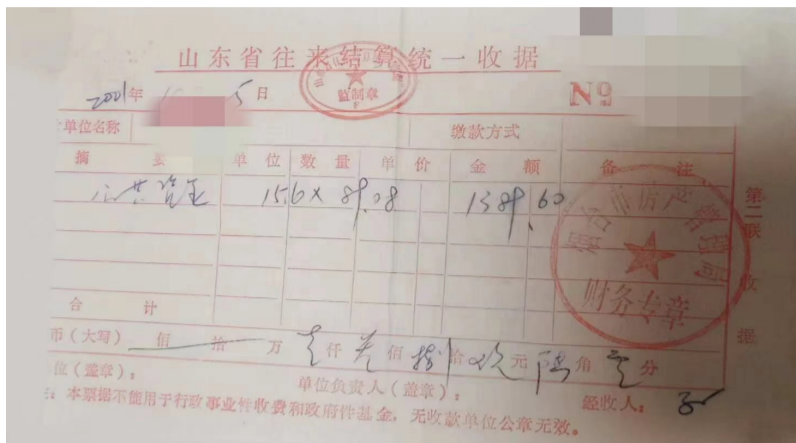 山东省往来结算统一收据
监制章
2001年 5日
№
单位名称 缴款方式
摘 要 单位 数量 单价 金额 备注
公共资金 15.6× 89.08 1389.60
合 计
币(大写) 佰 拾 万 壹仟 叁佰 捌拾 玖元 陆角 零分
位(盖章): 单位负责人(盖章): 经收人:
注:本票据不能用于行政事业性收费和政府性基金,无收款单位公章无效。
第二联 收据
市房产管理局
财务专章